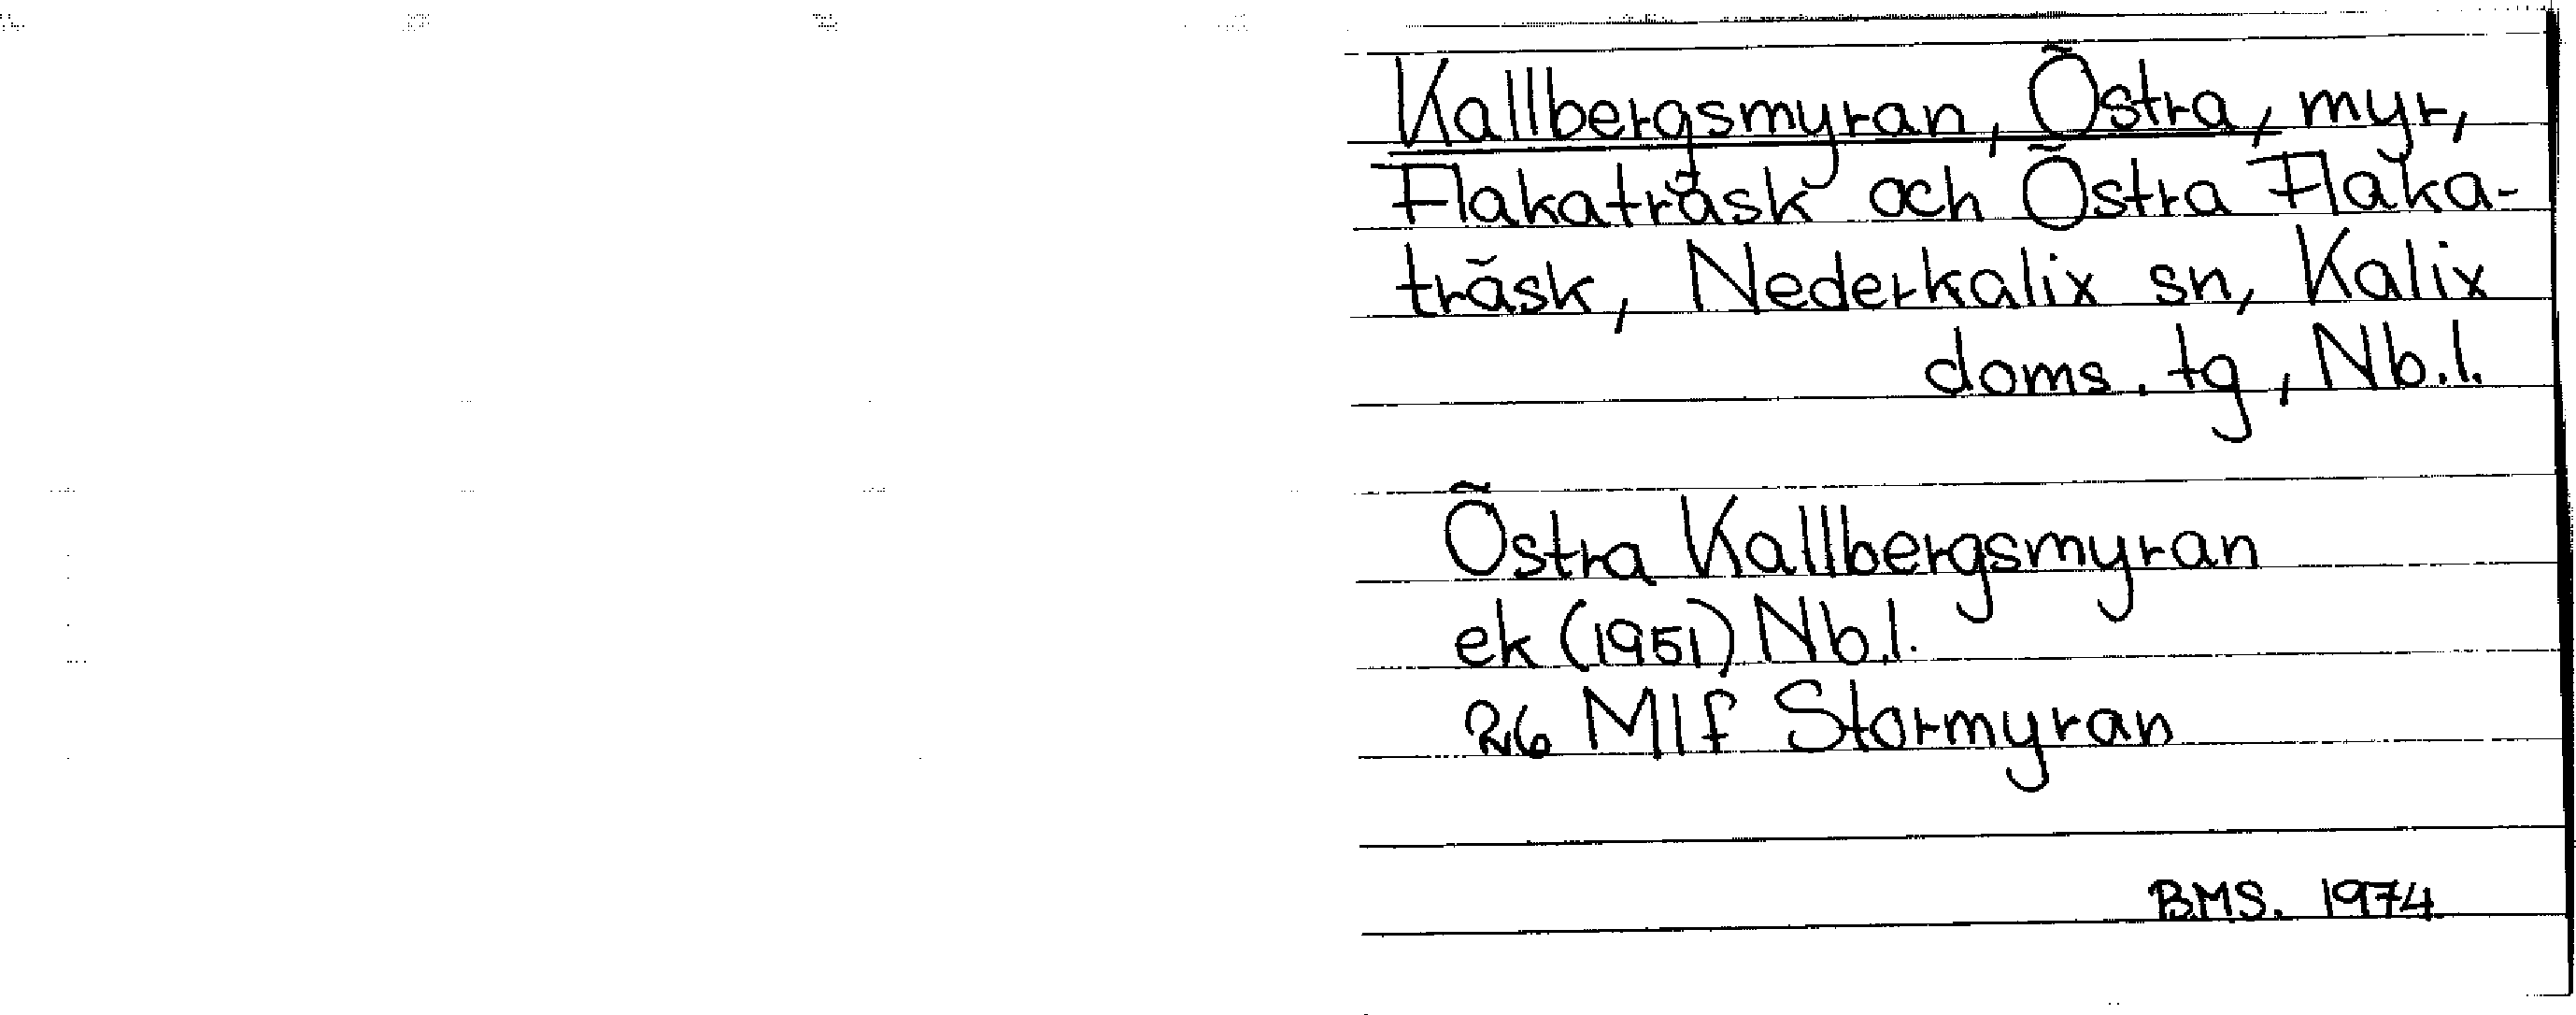 Kallbergsmyran, Östra, myr,
Flakaträsk och Östra Flaka-
träsk, Nederkalix sn, Kalix
doms. tg, Nb.l.
Östra Kallbergsmyran
ek (1951) Nb.l.
26 Mlf Stormyran
BMS. 1974